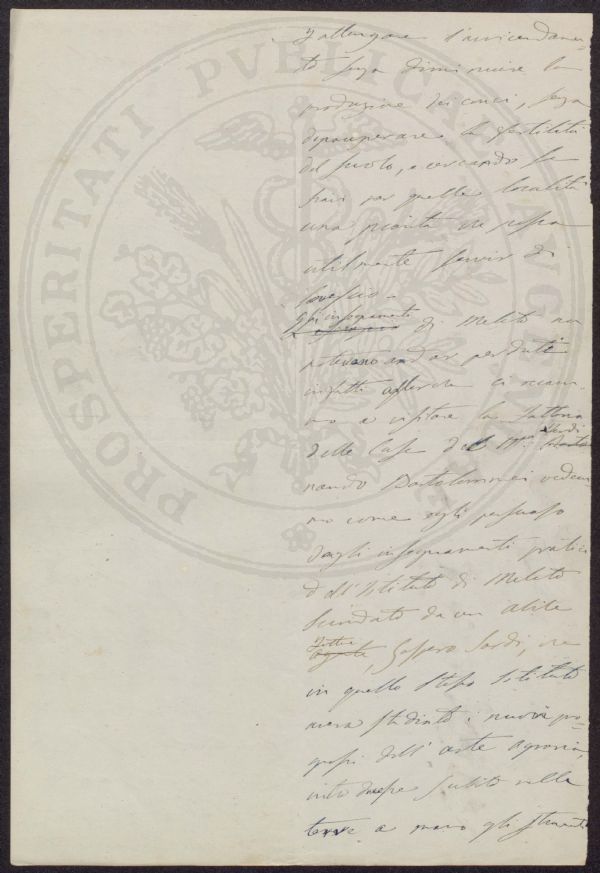 PROSPERITATI PVBLICAE AVGENDAE
d'allargare l'avvicendamen-
to senza diminuire la
produzione dei concj, senza
depauperare la fertilità
del suolo, e cercando
per quelle località
una pianta che possa
utilmente servir di
sovescio.
Gli insegnamenti
di Meleto non
potevano andar perdute
infatti allorché ci recam-
mo a visitare la Fattoria
delle Case del Mse. Ferdi
nando Bartolommei vedem-
mo come egli persuaso
dagli insegnamenti pratici
dell'Istituto di Meleto
secondato da un abile
Fattore
agente, Gaspero Sordi, che
in quello stesso Istituto
aveva studiato i nuovi pro-
gressi dell'arte agraria,
subito nelle
terre a mano gli strumenti